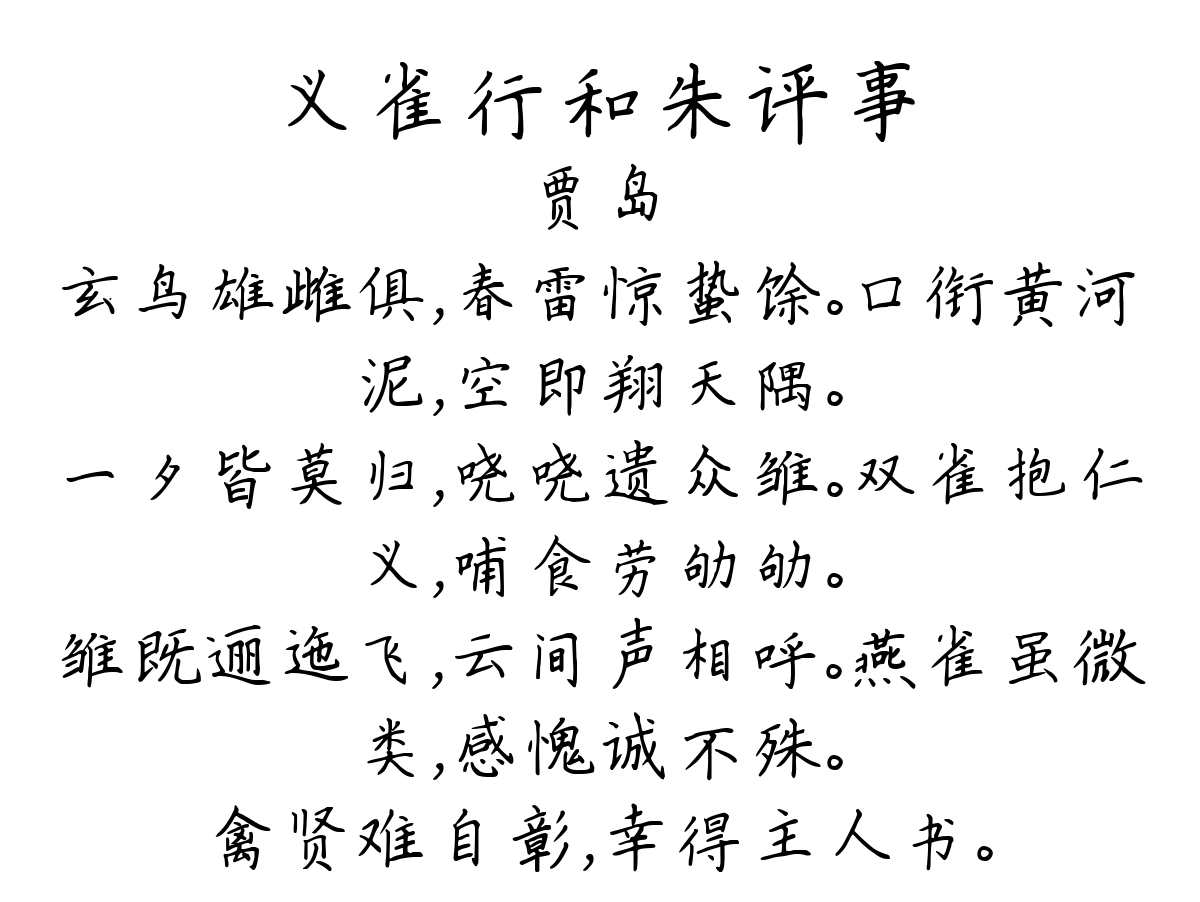 义雀行和朱评事
贾岛
玄鸟雄雌俱,春雷惊蛰馀。口衔黄河
泥,空即翔天隅。
一夕皆莫归,哓哓遗众雏。双雀抱仁
义,哺食劳劬劬。
雏既逦迤飞,云间声相呼。燕雀虽微
类,感愧诚不殊。
禽贤难自彰,幸得主人书。